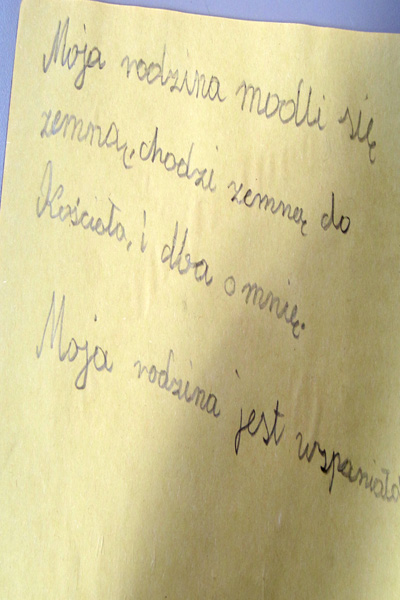 Moja rodzina modli się
zemną, chodzi zemną do
Kościoła, i dba o mnię.
Moja rodzina jest wspaniała